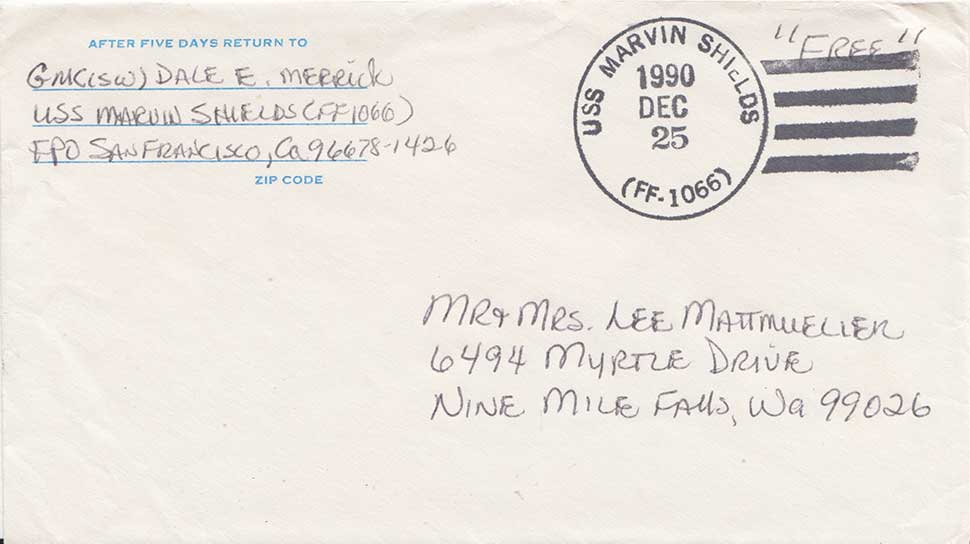 AFTER FIVE DAYS RETURN TO
GMC(SW) DALE E. MERRICK
USS MARVIN SHIELDS (FF1066)
FPO SAN FRANCISCO, Ca 96678-1426
ZIP CODE
USS MARVIN SHIELDS
1990
DEC
25
(FF-1066)
"FREE"
MR & MRS. LEE MATTMUELLER
6494 MYRTLE DRIVE
NINE MILE FALLS, Wa 99026